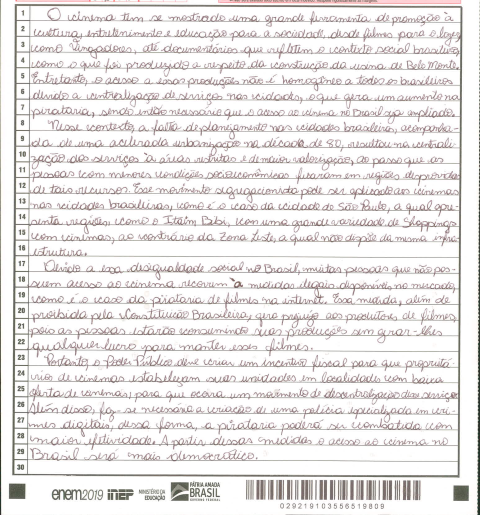 1 O cinema tem se mostrado uma grande ferramenta de promoção à
2 cultura, entretenimento e educação para a sociedade, desde filmes para o lazer,
3 como Vingadores, até documentários que refletem o contexto social brasileiro,
4 como o que foi produzido a respeito da construção da usina de Belo Monte.
5 Entretanto, o acesso a essas produções não é homogêneo a todos os brasileiros
6 devido a centralização de serviços nas cidades, o que gera um aumento na
7 pirataria, sendo então necessário que o acesso ao cinema no Brasil seja ampliado.
8 Nesse contexto, a falta de planejamento nas cidades brasileiras, acompanha-
9 da de uma acelerada urbanização na década de 80, resultou na centrali-
10 zação dos serviços à áreas restritas e de maior valorização, ao passo que as
11 pessoas com menores condições socioeconômicas ficaram em regiões desprovidas
12 de tais recursos. Esse movimento segregacionista pode ser aplicado aos cinemas
13 nas cidades brasileiras, como é o caso da cidade de São Paulo, a qual apre-
14 senta regiões, como o Itaim Bibi, com uma grande variedade de Shoppings
15 com cinemas, ao contrário da Zona Leste, a qual não dispõe da mesma infra-
16 estrutura.
17 Devido a essa desigualdade social no Brasil, muitas pessoas que não pos-
18 suem acesso ao cinema recorrem à medidas ilegais disponíveis no mercado,
19 como é o caso da pirataria de filmes na internet. Essa medida, além de
20 proibida pela Constituição Brasileira, gera prejuízo aos produtores de filmes,
21 pois as pessoas estarão consumindo suas produções sem gerar-lhes
22 qualquer lucro para manter esses filmes.
23 Portanto, o Poder Público deve criar um incentivo fiscal para que proprietá
24 rios de cinemas estabeleçam suas unidades em localidade com baixa
25 oferta de cinemas, para que ocorra um movimento de descentralização dos serviços.
26 Além disso, faz-se necessária a criação de uma polícia especializada em cri-
27 mes digitais, dessa forma, a pirataria poderá ser combatida com
28 maior efetividade. A partir dessas medidas o acesso ao cinema no
29 Brasil será mais democrático.
30
enem2019 inep MINISTÉRIO DA EDUCAÇÃO PÁTRIA AMADA BRASIL GOVERNO FEDERAL
029219103556519809